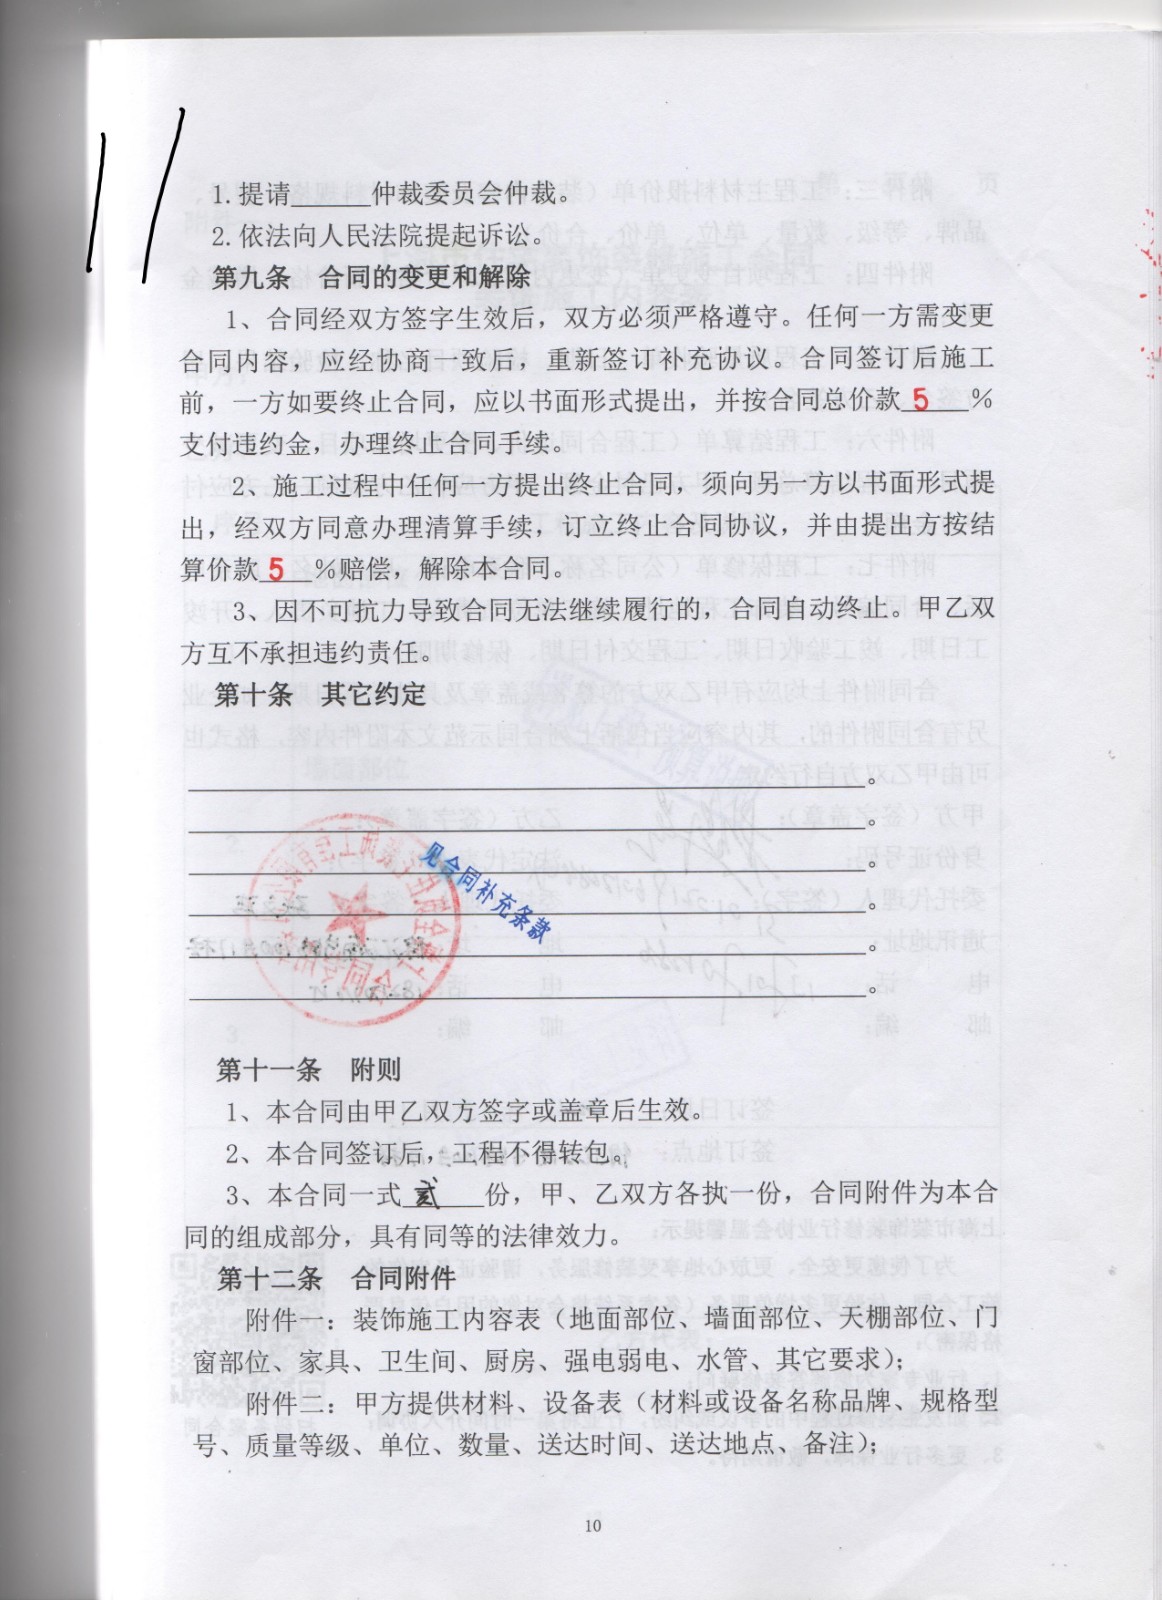 1.提请______仲裁委员会仲裁。
2.依法向人民法院提起诉讼。
第九条 合同的变更和解除
1、合同经双方签字生效后，双方必须严格遵守。任何一方需变更
合同内容，应经协商一致后，重新签订补充协议。合同签订后施工
前，一方如要终止合同，应以书面形式提出，并按合同总价款 5 %
支付违约金，办理终止合同手续。
2、施工过程中任何一方提出终止合同，须向另一方以书面形式提
出，经双方同意办理清算手续，订立终止合同协议，并由提出方按结
算价款 5 %赔偿，解除本合同。
3、因不可抗力导致合同无法继续履行的，合同自动终止。甲乙双
方互不承担违约责任。
第十条 其它约定
。
。
见合同补充条款
。
。
。
。
第十一条 附则
1、本合同由甲乙双方签字或盖章后生效。
2、本合同签订后，工程不得转包。
3、本合同一式 贰 份，甲、乙双方各执一份，合同附件为本合
同的组成部分，具有同等的法律效力。
第十二条 合同附件
附件一：装饰施工内容表（地面部位、墙面部位、天棚部位、门
窗部位、家具、卫生间、厨房、强电弱电、水管、其它要求）；
附件二：甲方提供材料、设备表（材料或设备名称品牌、规格型
号、质量等级、单位、数量、送达时间、送达地点、备注）；
10